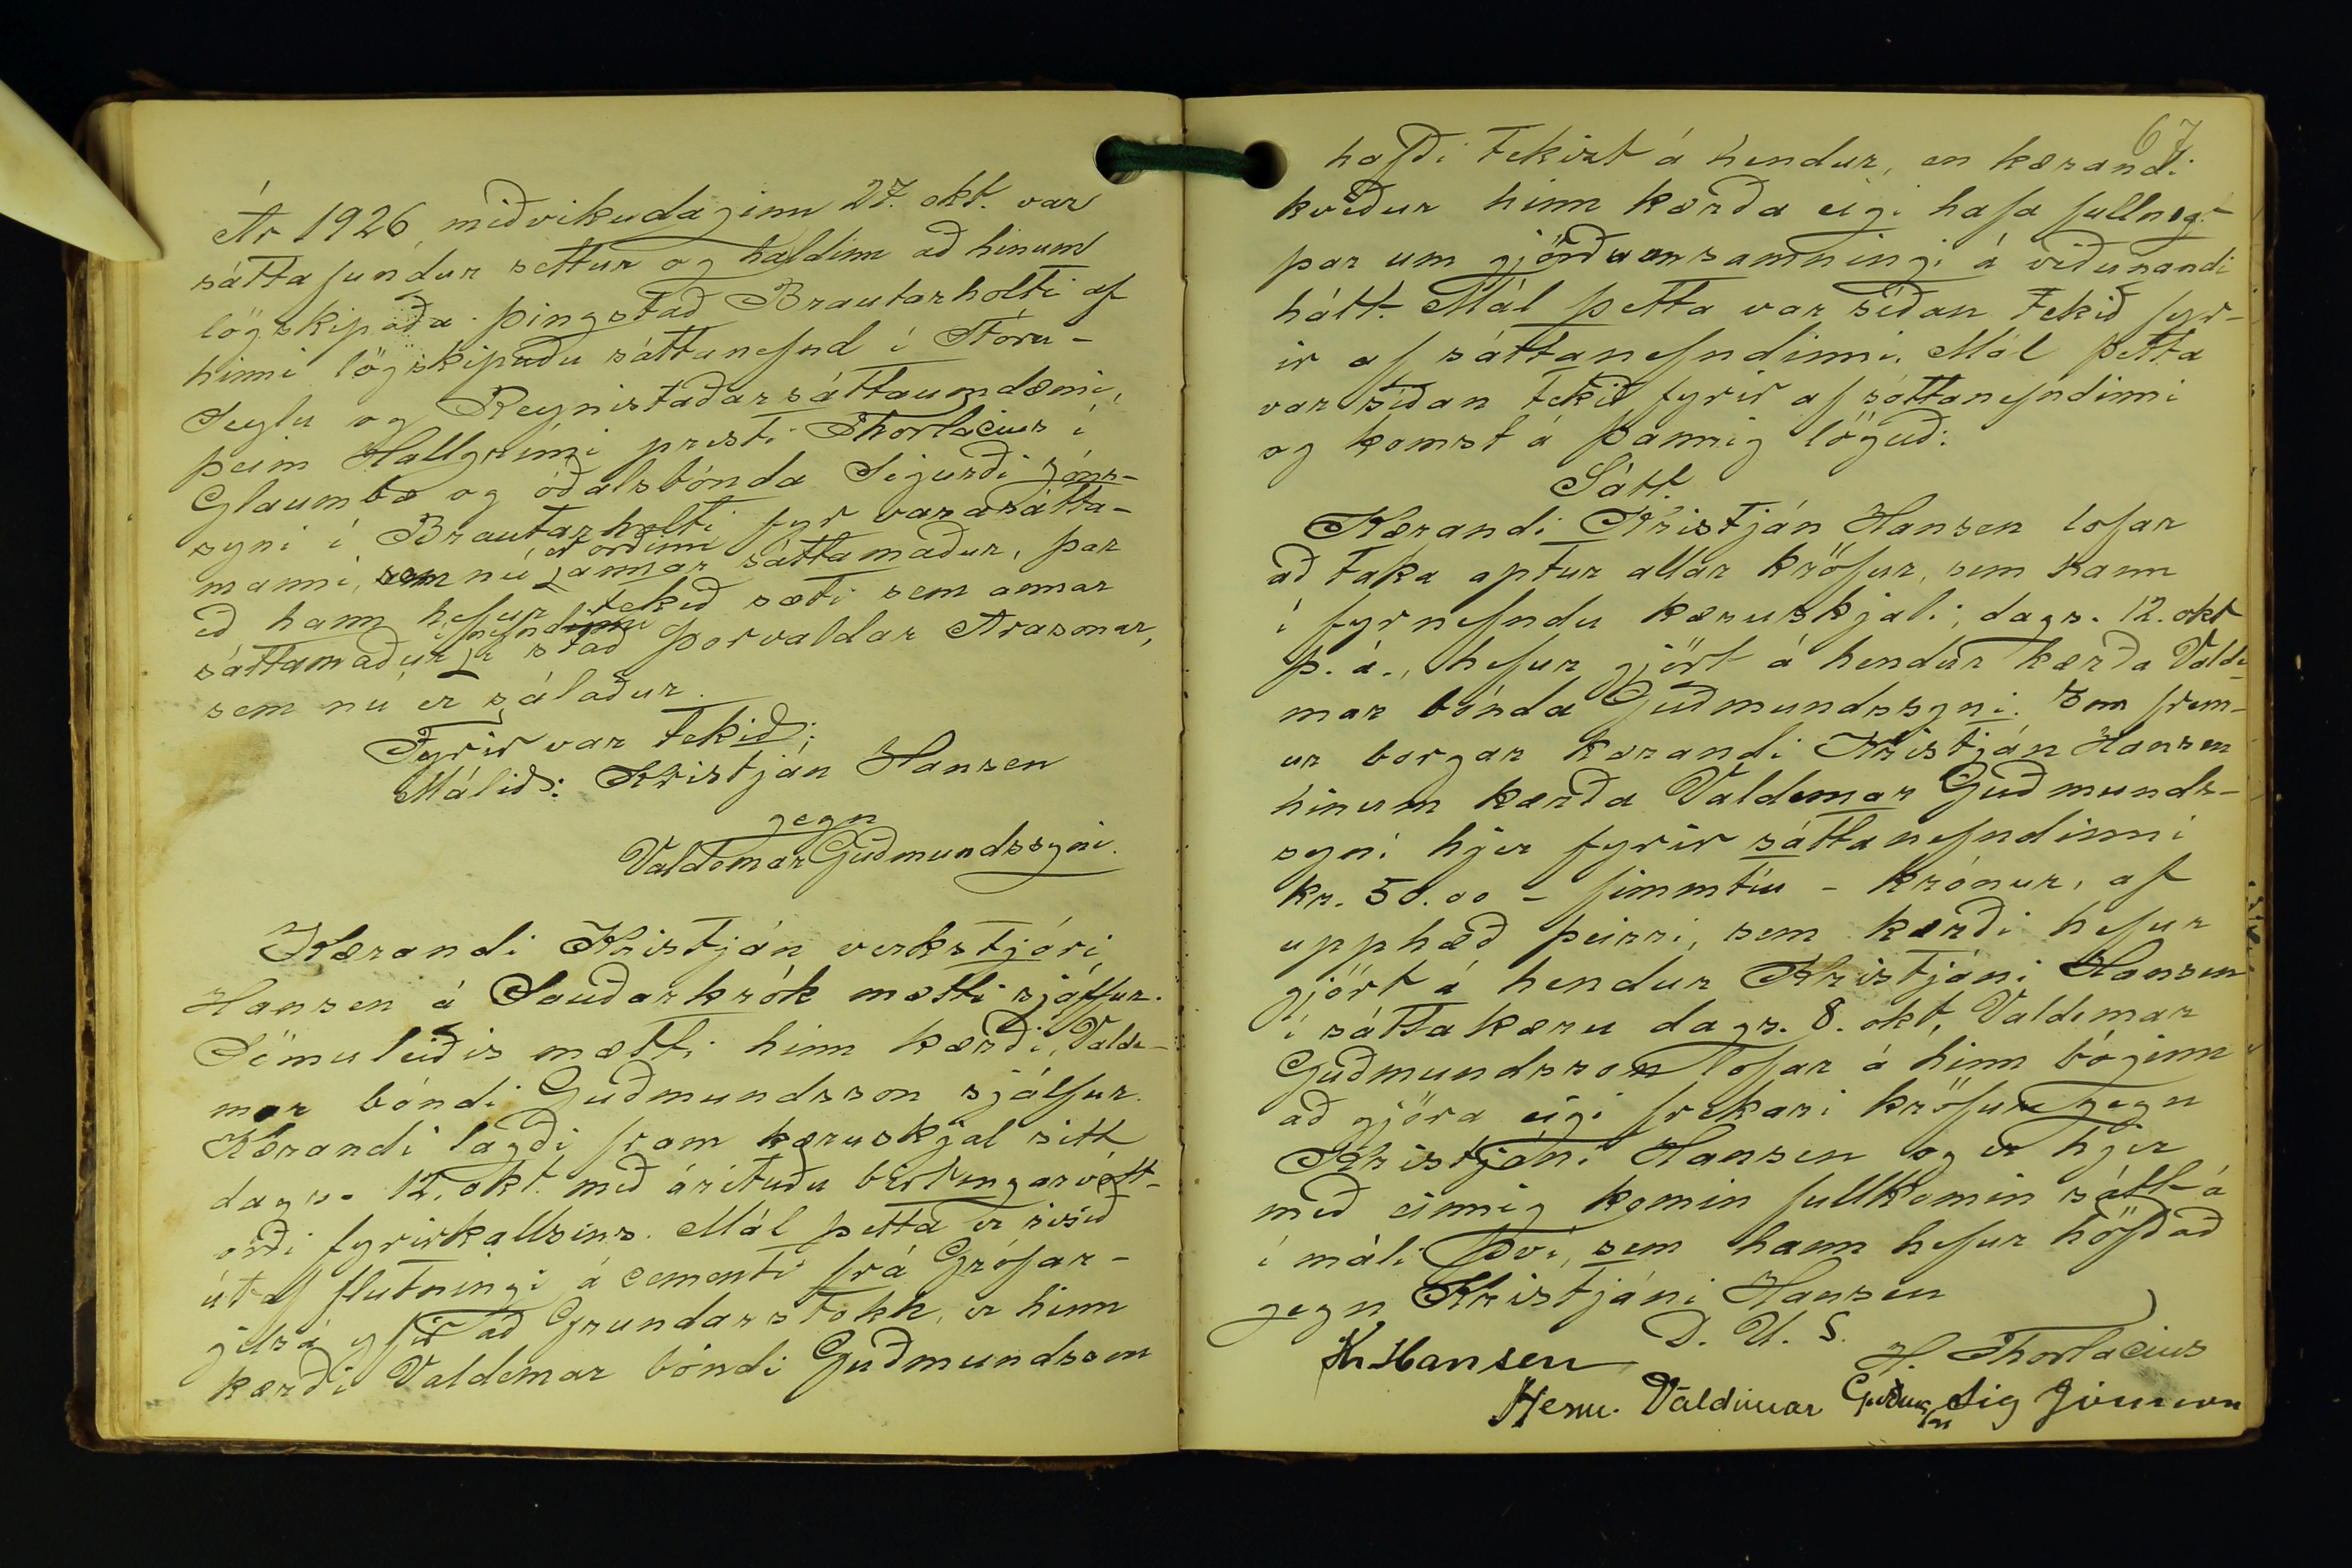 Ár 1926, miðvikudaginn 27. okt. var
sáttafundur settur og haldinn að hinum
lögskipaða þingstað Brautarholti af
hinni lögskipuðu sáttanefnd í Stóru-
Seylu og Reynistaðarsáttaumdæmi,
þeim Hallgrími presti Thorlacius í
Glaumbæ og óðalsbónda Sigurði Jóns-
syni í Brautarholti fyr varasátta-
manni, sem nú er orðinn annar sáttamaður, þar
eð hann hefur tekið sæti sem annar
sáttamaður í nefndinni í stað Þorvaldar Arasonar,
sem nú er sálaður.
Fyrir var tekið:
Málið: Kristján Hansen
gegn
Valdemar Guðmundssyni.
Kærandi Kristján verkstjóri
Hansen á Sauðarkrók mætti sjálfur.
Sömuleiðis mætti hinn kærði, Valde-
mar bóndi Guðmundsson sjálfur.
Kærandi lagði fram kæruskjal sitt
dags. 12. okt. með árituðu birtingarvott-
orði fyrirkallsins. Mál þetta er risið
út af flutningi á cementi frá Grófar-
gilsá yfir að Grundarstokk, er hinn
kærði Valdemar bóndi Guðmundsson
67
hafði tekizt á hendur, en kærandi
kveður hinn kærða eigi hafa fullnægt
þar um gjörðum samningi á viðunandi
hátt. Mál þetta var síðan tekið fyr-
ir af sáttanefndinni. Mál þetta
var síðan tekið fyrir af sáttanefndinni
og komst á þannig löguð:
Sátt.
Kærandi Kristján Hansen lofar
að taka aptur allar kröfur, sem hann
í fyrnefndu kæruskjali, dags. 12. okt
þ. á., hefur gjört á hendur kærða Valde-
mar bónda Guðmundssyni. Enn frem-
ur borgar kærandi Kristján Hansen
hinum kærða Valdemar Guðmunds-
syni hjer fyrir sáttanefndinni
kr. 50.00 - fimmtíu - krónur, af
upphæð þeirri, sem kærði hefur
gjört á hendur Kristjáni Hansen
í sáttakæru dags. 8. okt, Valdemar
Guðmundsson lofar á hinn bóginn
að gjöra eigi frekari kröfur gegn
Kristjáni Hansen og er hjer
með einnig komin fullkomin sátt á
í máli því, sem hann hefur höfðað
gegn Kristjáni Hansen
D. U. S.
Kr Hansen H. Thorlacius
Valdimar Guðms Sig Jónsson